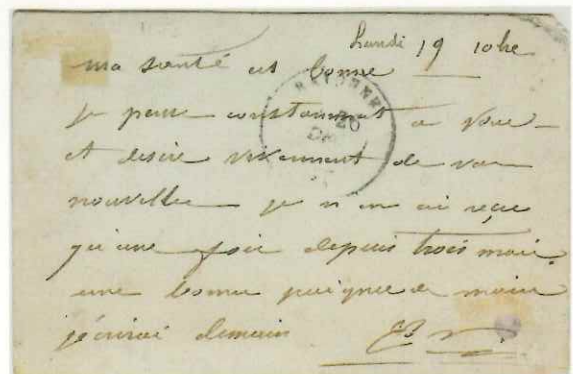 Lundi 19 10bre
ma santé est bonne
je pense constamment à vous
et desire vivement de vos
nouvelles je n'en ai reçu
qu'une fois depuis trois mois.
une bonne poignée de main
j'écrirai demain
BAYONNE
20
DEC